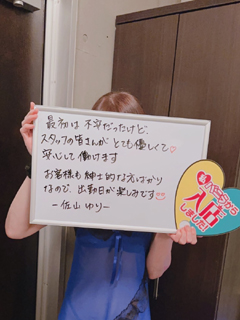 最初は不安だったけど、
スタッフの皆さんがとても優しくて♡
安心して働けます
お客様も紳士的な方ばかり
なので、出勤日が楽しみです
ー佐山 ゆりー
バニラから
入店
しました!